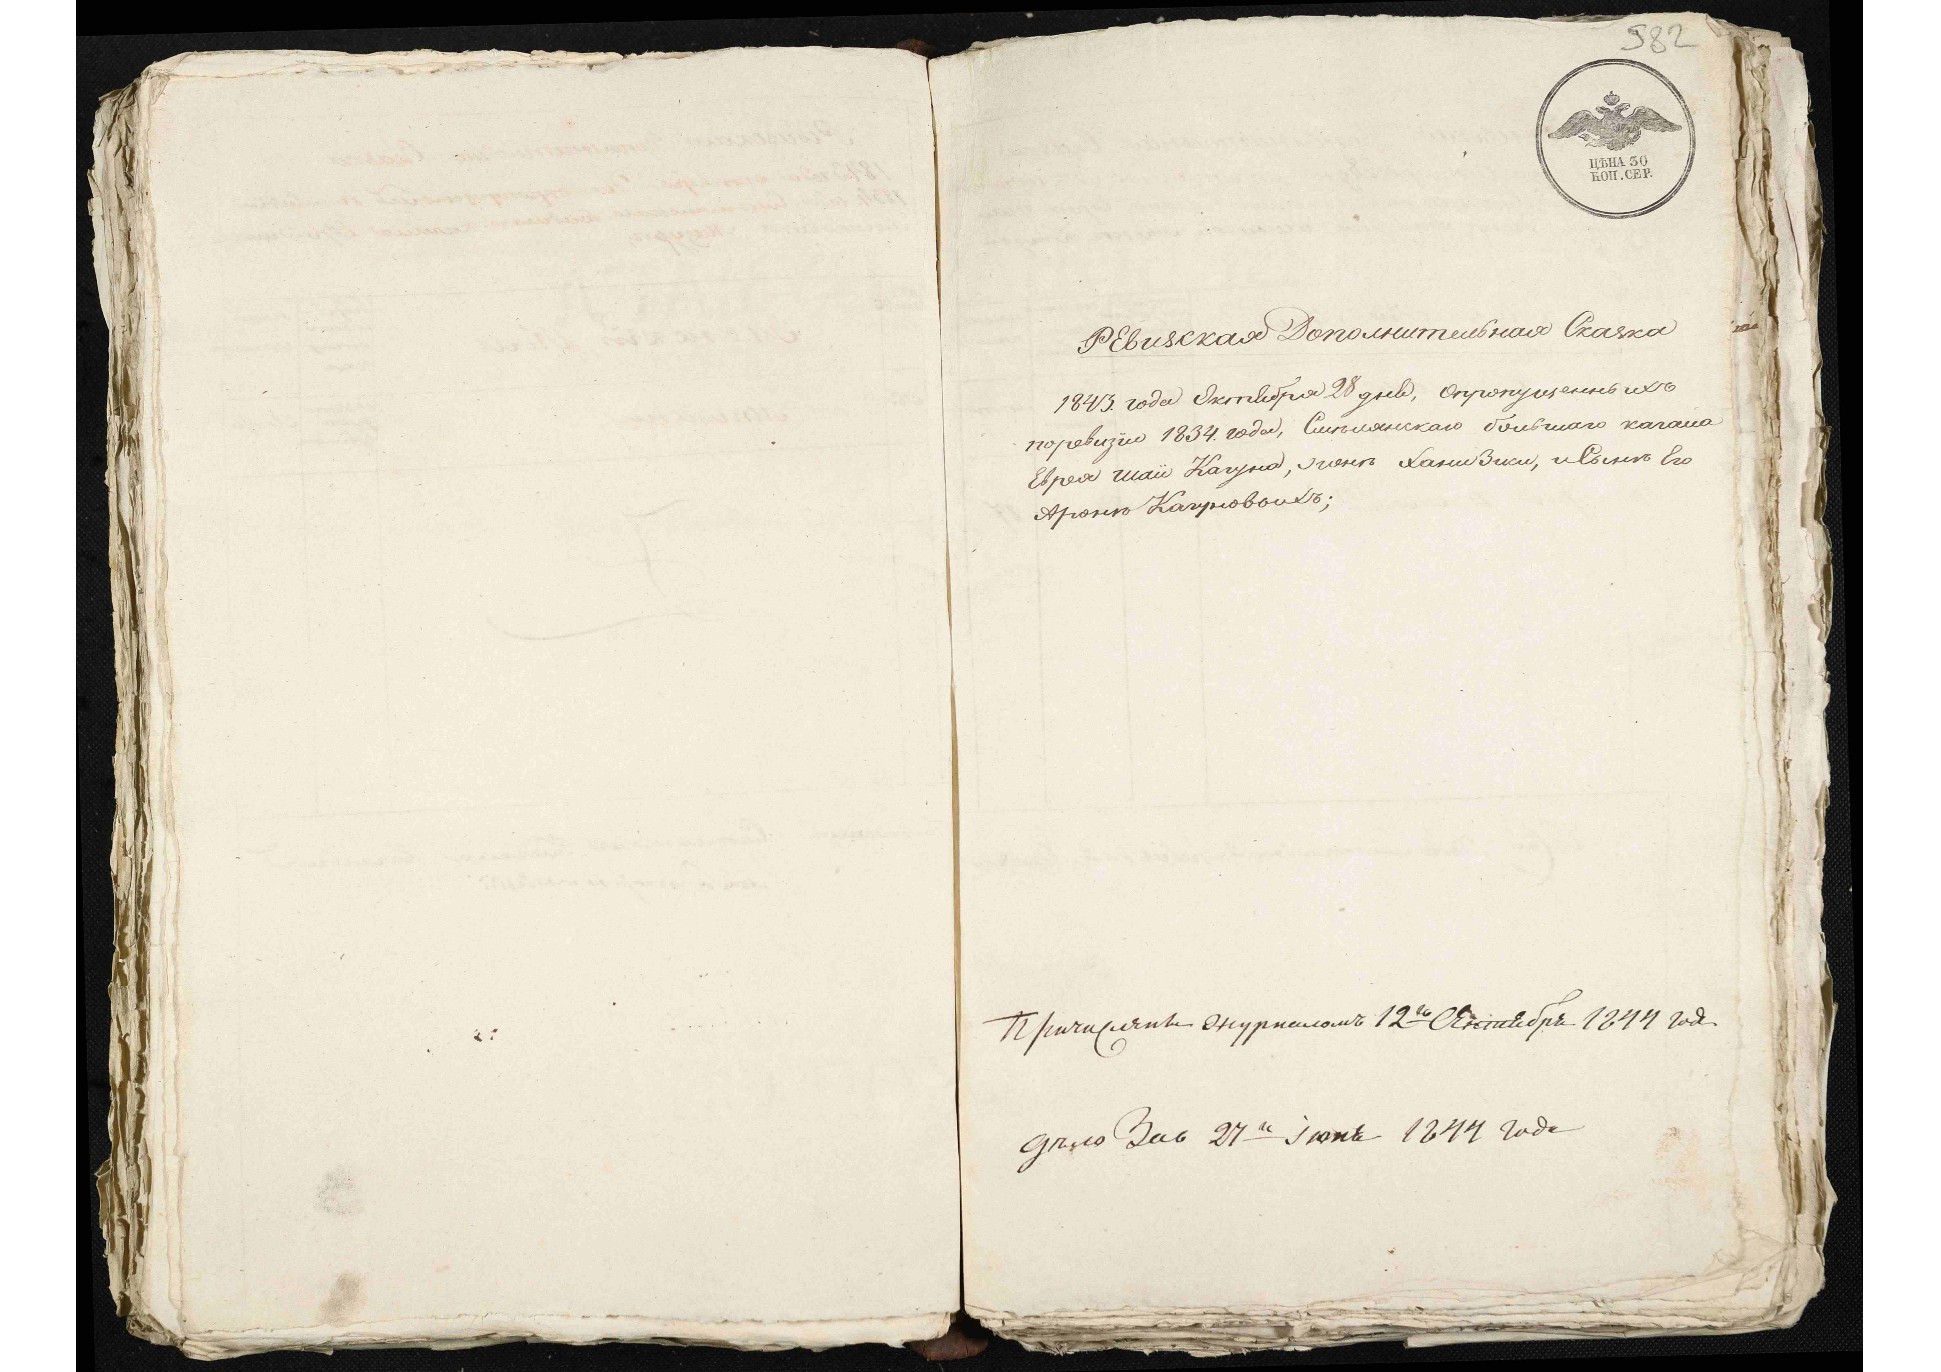 582
ЦѢНА 30
КОП. СЕР.
Ревизская Дополнительная Сказка
1843. года Октября 28 дня, опропущенныхъ
поревизіи 1834. года, Смѣлянскаго большаго кагала
Еврея Шаи Кагуна, женѣ Ханизики, и Сынѣ Его
Аронѣ Кагуновыхъ;
Причислены журналомъ 12го 1844 года
дѣло 27 Іюня 1844 года